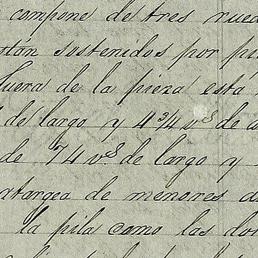 compone de tres rued
stán sostenidos por pi
fuera de la pieza está
de largo y 4 3/4 v.s de a
de 74 v.s de largo y
atargea de menores d
la pila como las do